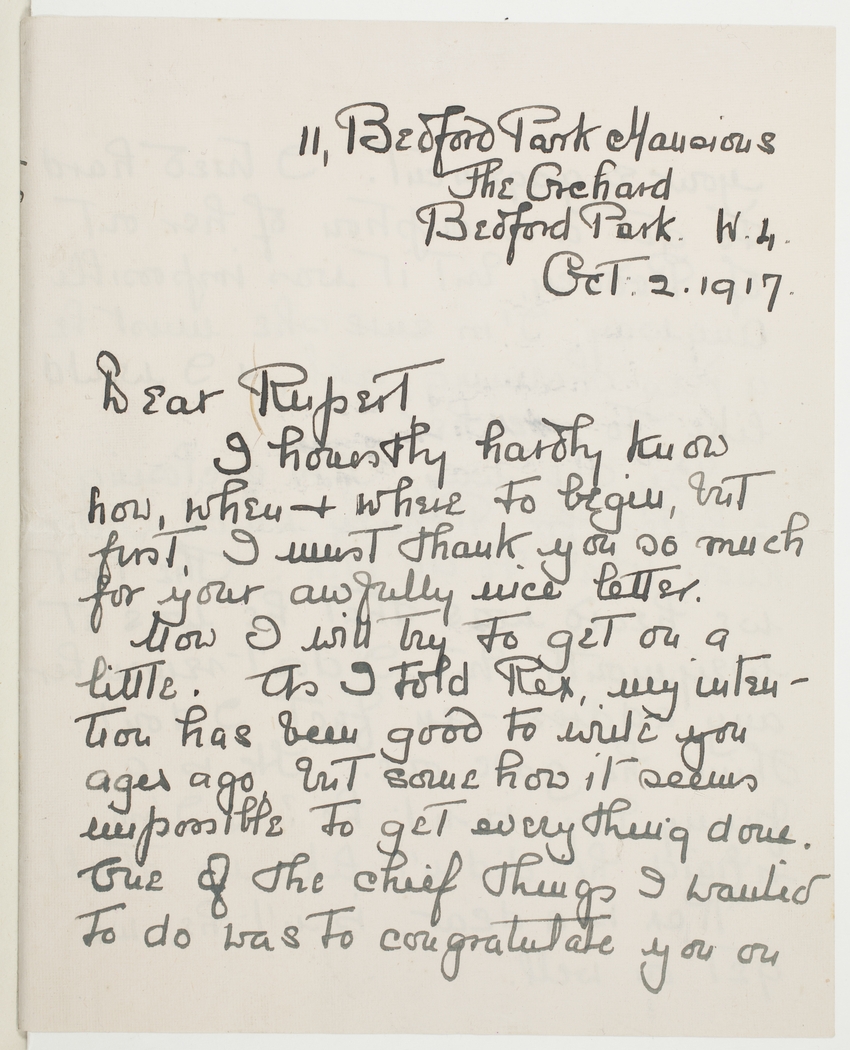 11, Bedford Park Mansions
The Orchard
Bedford Park. W.4.
Oct. 2. 1917.
Dear Rupert,
I honestly hardly know
how, when + where to begin, but
first, I must thank you so much
for your awfully nice letter.
Now I will try to get on a
little. As I told Rex, my inten-
tion has been good to write you
ages ago, but some how it seems
impossible to get everything done.
One of the chief things I wanted
to do was to congratulate you on